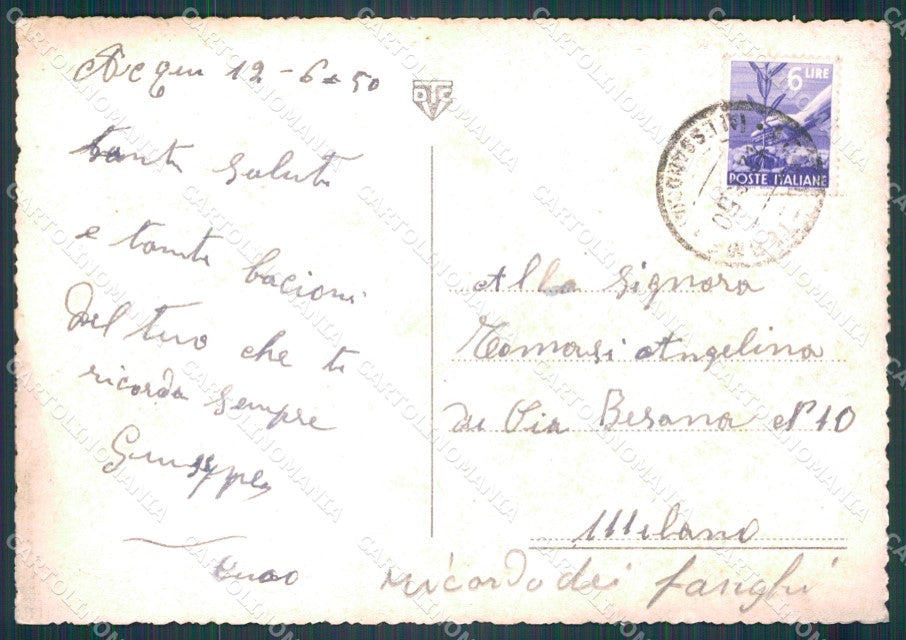 Acqui 12-6-50
tanti saluti
e tanti bacioni
dal tuo che ti
ricorda sempre
Giuseppe
6 LIRE
POSTE ITALIANE
Alla Signora
Tomasi Angelina
di Via Besana N° 10
Milano
ricordo dei fanghi
CARTOLINOMANIA